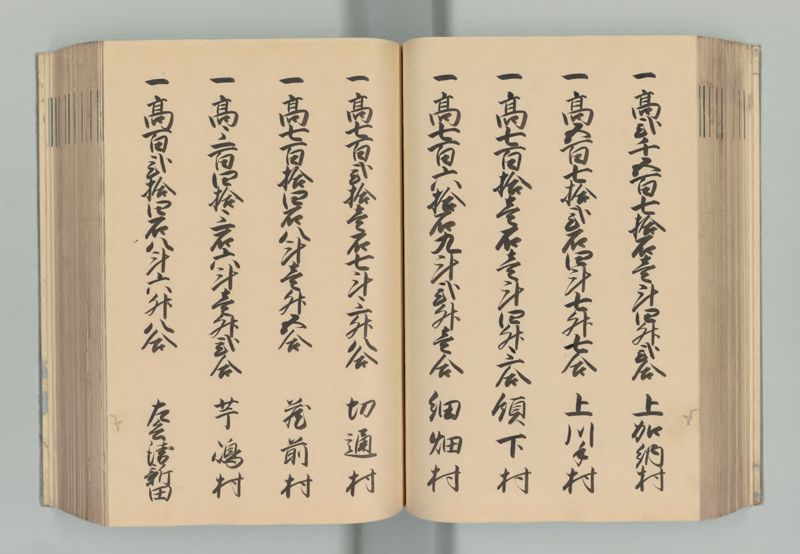 一高弐千五百七拾石壱斗四升弐合 上加納村
一高五百七拾弐石四斗七升七合 上川手村
一高七百拾壱石壱斗四升三合 領下村
一高七百六拾石九斗弐升壱合 細畑村
一高七百弐拾壱石七斗三升八合 切通村
一高七百拾四石八斗壱升五合 蔵前村
一高三百四拾三石六斗壱升弐合 芋嶋村
一高百弐拾四石八斗六升八合 新田